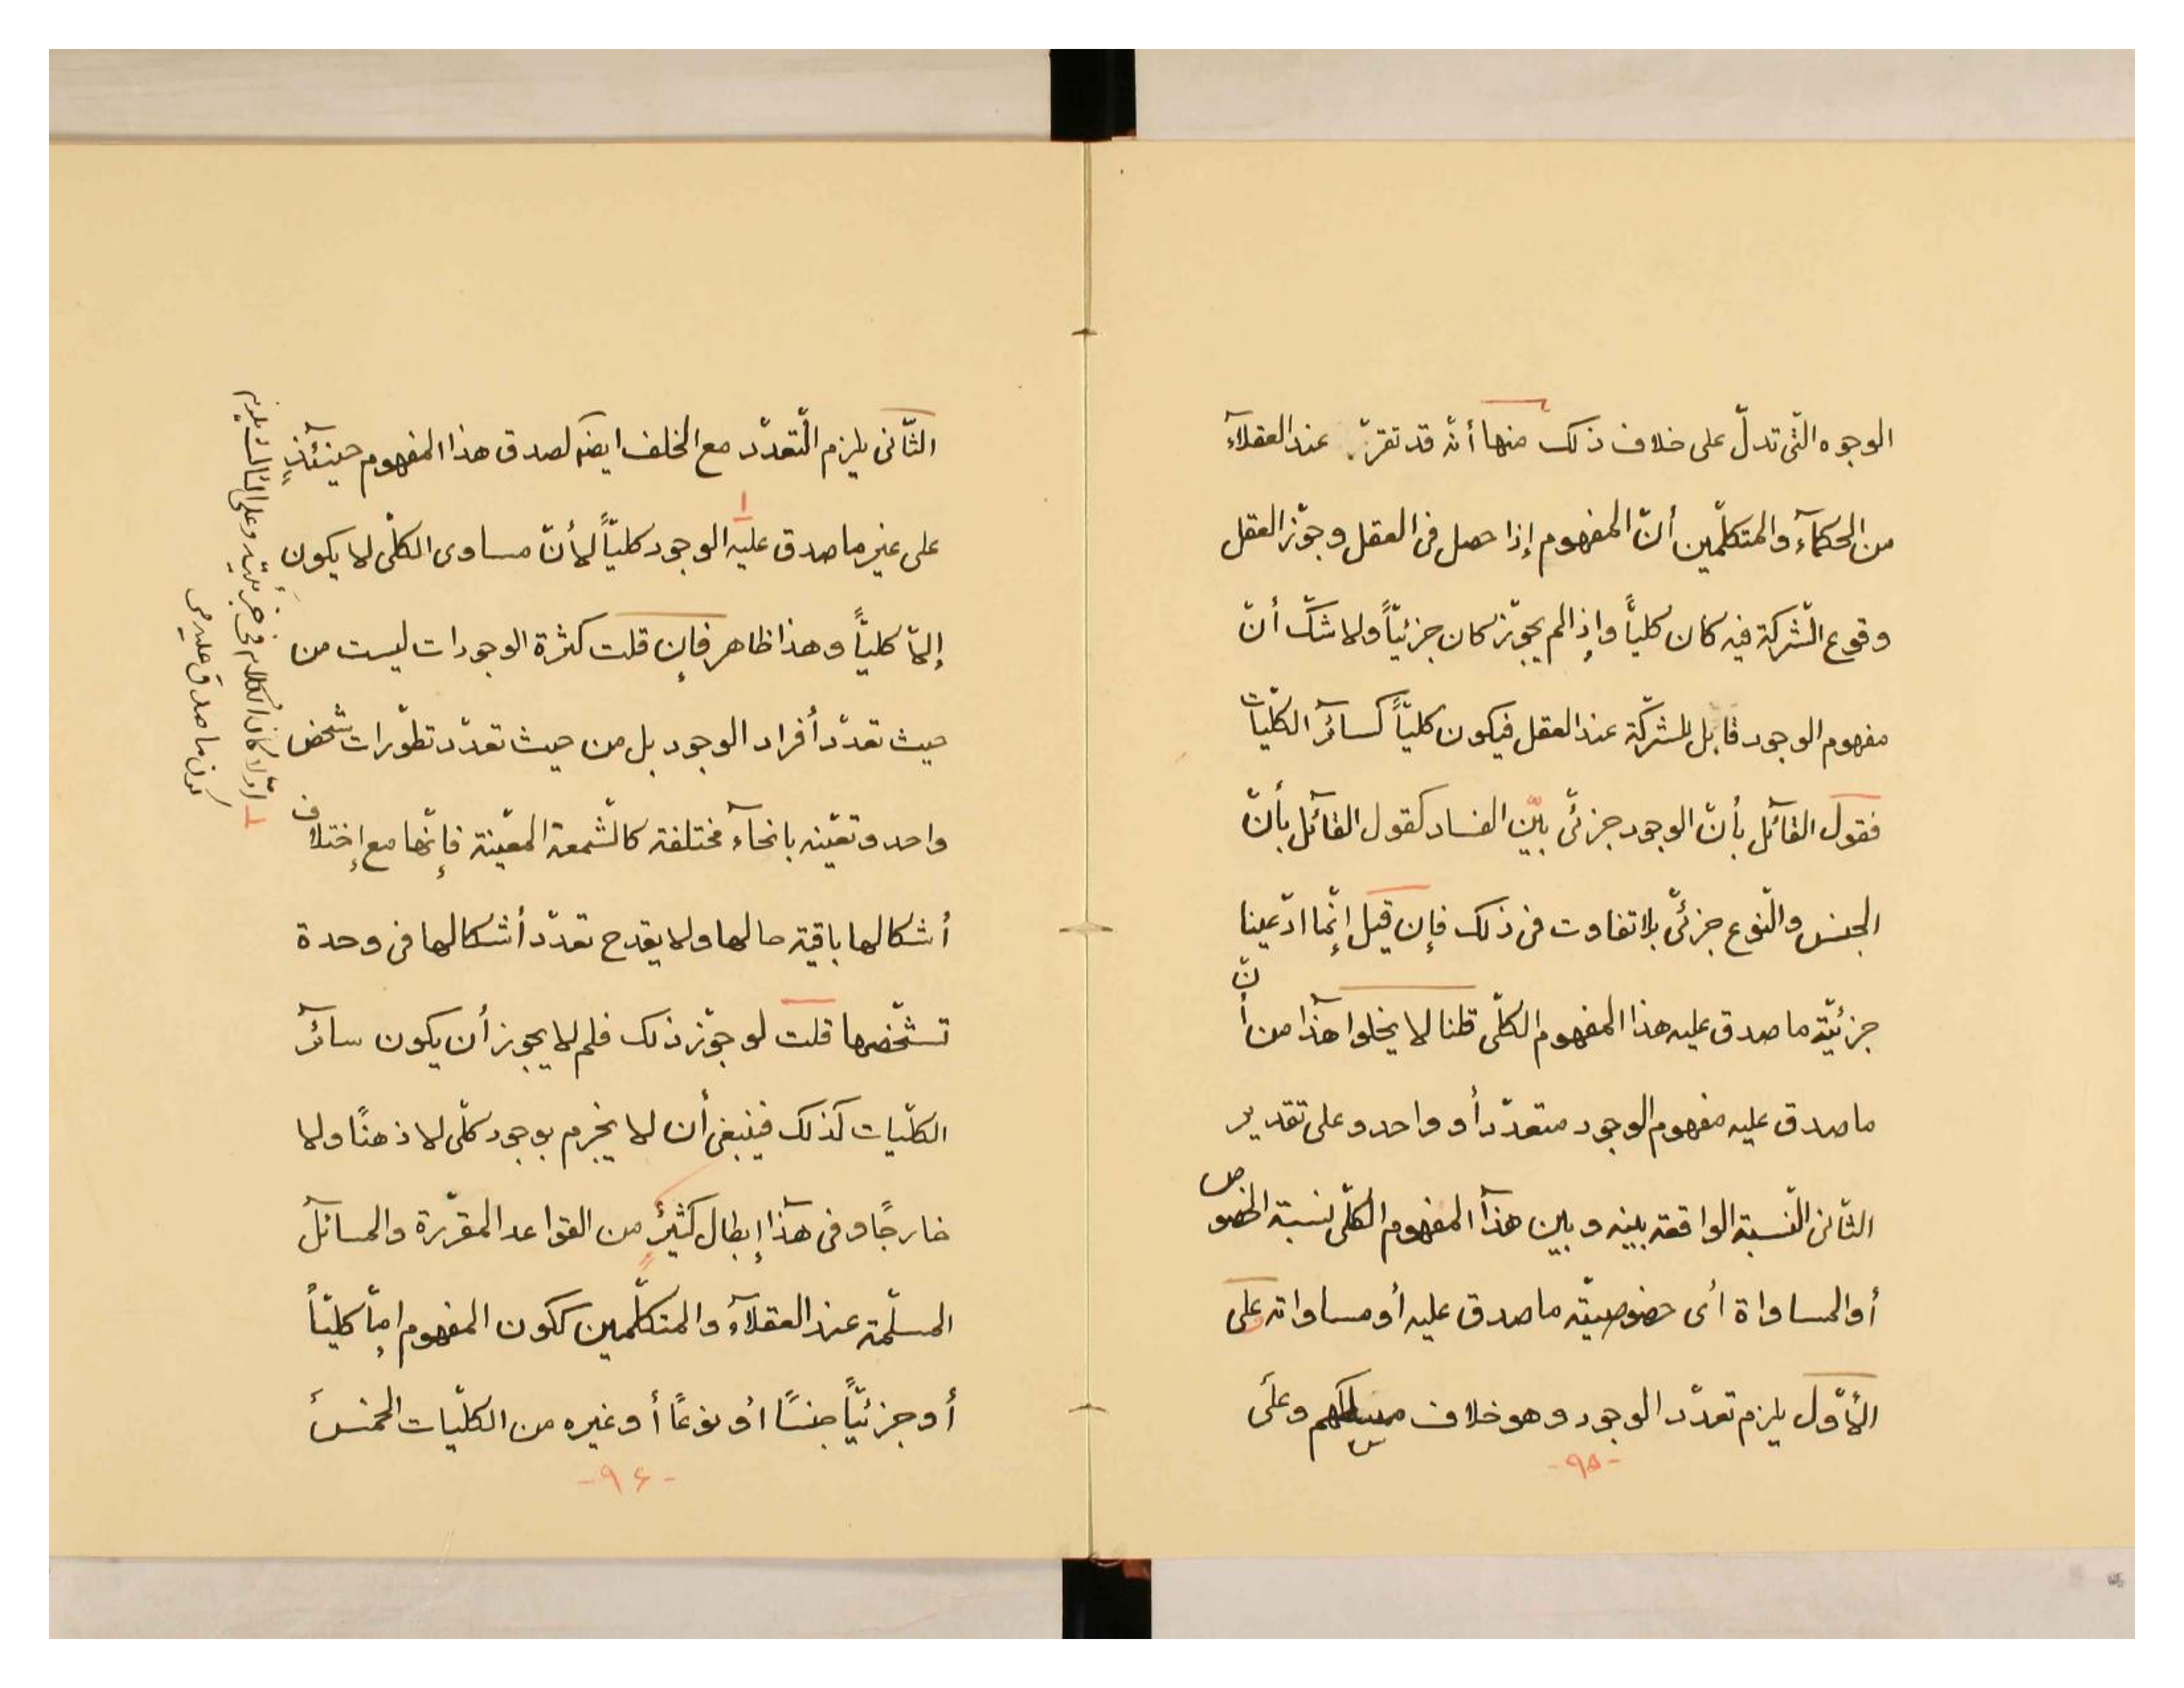 الوجوه الّتى تدلّ على خلاف ذلک منها أنّه قد تقرّر عند العقلآء
من الحکمآء والمتکلّمین أنّ المفهوم إذا حصل فى العقل وجوّز العقل
وقوع الشّرکة فیه کان کلیّاً وإذا لم یجوّز کان جزئیّاً ولا شکّ أنّ
مفهوم الوجود قابل للشرکة عند العقل فیکون کلیّاً کسائر الکلّیات
فقول القآئل بأنّ الوجود جزئىّ بیّن الفساد کقول القآئل بأنّ
الجنس والنّوع جزئىّ بلا تفاوت فى ذلک فإن قیل إنّما ادّعینا
جزئیّة ما صدق علیه هذا المفهوم الکلّى قلنا لا یخلوا هذا من أنّ
ما صدق علیه مفهوم الوجود متعدّد أو واحد وعلى تقدیر
الثّانى النّسبة الواقعة بینه وبین هذا المفهوم الکلّى نسبة الخصوص
أو المساواة أى خصوصیّته ما صدق علیه أو مساواته على
الأوّل یلزم تعدّد الوجود وهو خلاف مسلکهم وعلى
-٩۵-
الثّانى یلزم التّعدّد مع الخلف ایضه لصدق هذا المفهوم حینئذٍ
على غیر ما صدق علیه الوجود کلیّاً لأنّ مساوى الکلّى لا یکون
إلّا کلیّاً وهذا ظاهر فإن قلت کثرة الوجودات لیست من
حیث تعدّد أفراد الوجود بل من حیث تعدّد تطوّرات شخص
واحد وتعیّنه بانحآء مختلفة کالشّمعة المعیّنة فإنّها مع إختلاف
أشکالها باقیة حالها ولا یقدح تعدّد أشکالها فى وحدة
تشخّصها قلت لو جوّز ذلک فلم لا یجوز أن یکون سائر
الکلّیات کذلک فینبغى أن لا یجزم بوجود کلّى لا ذهنًا ولا
خارجًا وفى هذا إبطال کثیرٍ من القواعد المقرّرة والمسائل
المسلّمة عند العقلآء والمتکلّمین ککون المفهوم إمّا کلیّاً
أو جزئیّاً جنسًا أو نوعًا أو غیره من الکلّیات الخمس
-٩۶-
١ أوّلا کان الکلام فى جزئیّة وعلى الثالث یلزم
کون ما صدق علیه